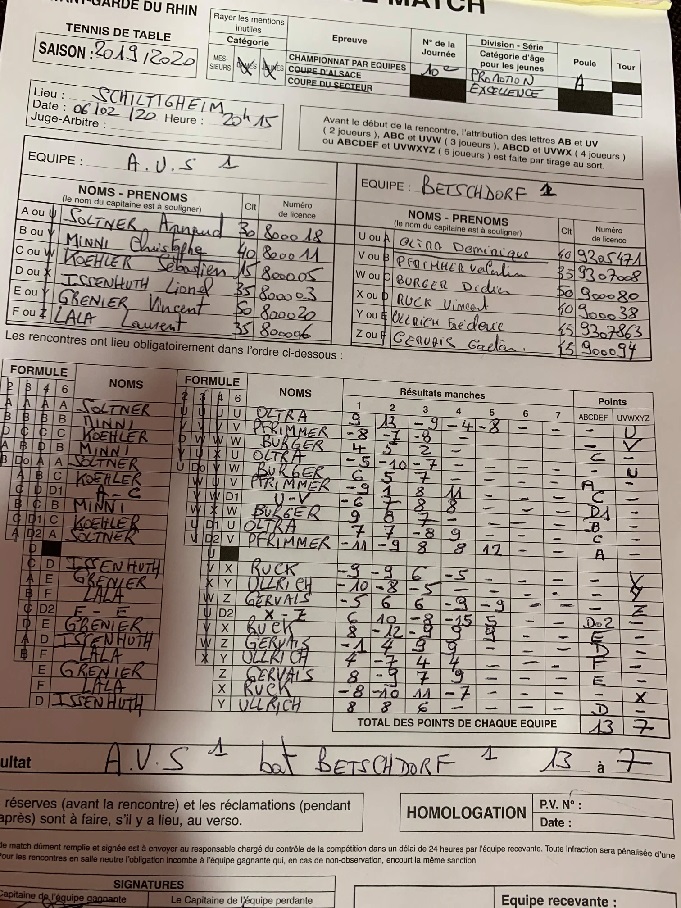 NT-GARDE DU RHIN
MATCH
TENNIS DE TABLE
SAISON : 2019/2020
Rayer les mentions inutiles
Catégorie
MES SIEURS
Epreuve
CHAMPIONNAT PAR EQUIPES
COUPE D'ALSACE
COUPE DU SECTEUR
N° de la Journée
10e
Division - Série
Catégorie d'âge pour les jeunes
PROMOTION
EXCELLENCE
Poule
A
Tour
Lieu : SCHILTIGHEIM
Date : 06/02/20 Heure : 20h15
Juge-Arbitre :
Avant le début de la rencontre, l'attribution des lettres AB et UV
( 2 joueurs ), ABC et UVW ( 3 joueurs ), ABCD et UVWX ( 4 joueurs )
ou ABCDEF et UVWXYZ ( 6 joueurs ) est faite par tirage au sort.
EQUIPE : A.V.S 1
NOMS - PRENOMS
(le nom du capitaine est à souligner)
Clt
Numéro de licence
A ou U SOLTNER Arnaud 30 800018
B ou V MINNI Christophe 40 800011
C ou W KOEHLER Sébastien 15 800005
D ou X ISSENHUTH Lionel 35 800003
E ou Y GRENIER Vincent 50 800020
F ou Z LALA Laurent 35 800006
EQUIPE : BETSCHDORF 1
NOMS - PRENOMS
(le nom du capitaine est à souligner)
Clt
Numéro de licence
U ou A OLTRA Dominique 40 9305471
V ou B PFRIMMER Valentin 35 9307008
W ou C BURGER Didier 50 900080
X ou D RUCK Vincent 40 900038
Y ou E ULLRICH Frédéric 45 9307863
Z ou F GERVAIS Gaëtan 45 900094
Les rencontres ont lieu obligatoirement dans l'ordre ci-dessous :
FORMULE
NOMS
FORMULE
NOMS
Résultats manches
Points
2 3 4 6
2 3 4 6
1 2 3 4 5 6 7
ABCDEF UVWXYZ
A SOLTNER U OLTRA 9 13 -9 -4 -8 - - - U
B MINNI V PFRIMMER -8 -7 -8 - - - - - V
C KOEHLER W BURGER 4 5 2 - - - - C -
B MINNI U OLTRA -5 -10 -7 - - - - - U
A SOLTNER W BURGER 6 5 7 - - - - A -
C KOEHLER V PFRIMMER -9 1 8 11 - - - C -
D1 A-C D1 U-V -6 7 8 8 - - - D1 -
B MINNI W BURGER 9 8 7 - - - - B -
C KOEHLER U OLTRA 7 7 -8 9 - - - C -
A SOLTNER V PFRIMMER -11 -9 8 8 12 - - A -
D ISSENHUTH X RUCK -9 -9 6 -5 - - - - X
E GRENIER Y ULLRICH -10 -8 -5 - - - - - Y
F LALA Z GERVAIS -5 6 6 -9 -9 - - - Z
D2 E-F D2 X-Z 6 10 -8 -15 5 - - Do2 -
E GRENIER X RUCK 8 -12 -9 9 9 - - E -
D ISSENHUTH Z GERVAIS -1 4 9 9 - - - D -
F LALA Y ULLRICH 4 -7 4 4 - - - F -
E GRENIER Z GERVAIS 8 -9 7 9 - - - E -
F LALA X RUCK -8 -10 11 -7 - - - - X
D ISSENHUTH Y ULLRICH 8 8 6 - - - - D -
TOTAL DES POINTS DE CHAQUE EQUIPE 13 7
ultat A.V.S 1 bat BETSCHDORF 1 13 à 7
réserves (avant la rencontre) et les réclamations (pendant
après) sont à faire, s'il y a lieu, au verso.
HOMOLOGATION
P.V. N° :
Date :
de match dûment remplie et signée est à envoyer au responsable chargé du contrôle de la compétition dans un délai de 24 heures par l'équipe recevante. Toute infraction sera pénalisée d'une
Pour les rencontres en salle neutre l'obligation incombe à l'équipe gagnante qui, en cas de non-observation, encourt la même sanction
SIGNATURES
Capitaine de l'équipe gagnante
Le Capitaine de l'équipe perdante
Equipe recevante :